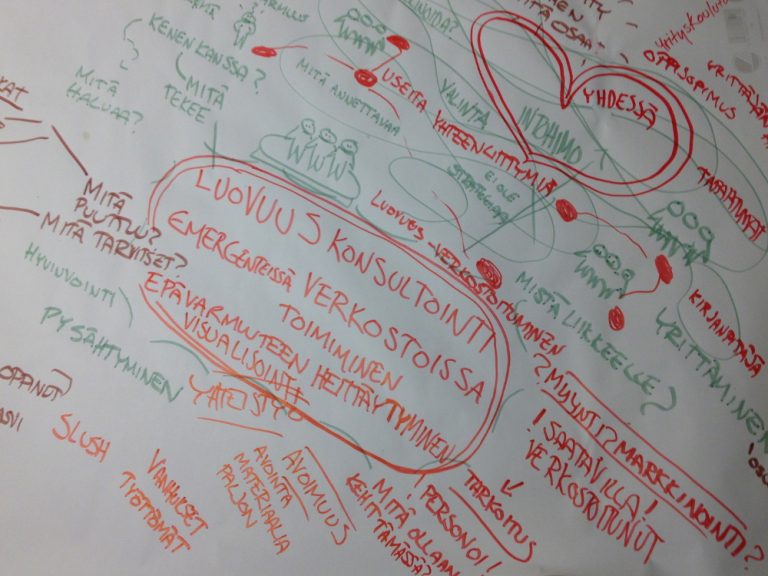 KENEN KANSSA?
MITÄ
TEKEE
MITÄ
HALUAA?
MITÄ ANNETTAVAA
USEITA YHTEENLIITTYMIÄ
VALINTA
INTOHIMO
YHDESSÄ
OPPISOPIMUS
EI OLE
STRATEGIAA
TAPAHTUMAT
KIRJANPITÄJÄ
MITÄ
PUUTTUU?
MITÄ TARVITSET?
HYVINVOINTI
PYSÄHTYMINEN
LUOVUUS KONSULTOINTI
EMERGENTEISSÄ VERKOSTOISSA
TOIMIMINEN
EPÄVARMUUTEEN HEITTÄYTYMINEN
VISUALISOINTI
LUOVUUS-VERKOSTOITUMINEN
MISTÄ LIIKKEELLE?
YRITTÄMINEN
? MYYNTI? MARKKINOINTI?
! SAATAVILLA!
VERKOSTOITUNUT
YHTEISTYÖ
SLUSH
VANHUKSET
TYÖTTÖMÄT
AVOIMUUS
AVOINTA
MATERIAALIA
PALJON
MITÄ OLLAAN
KEHITTÄMÄSSÄ?
! PERSONOI!
TARKOITUS